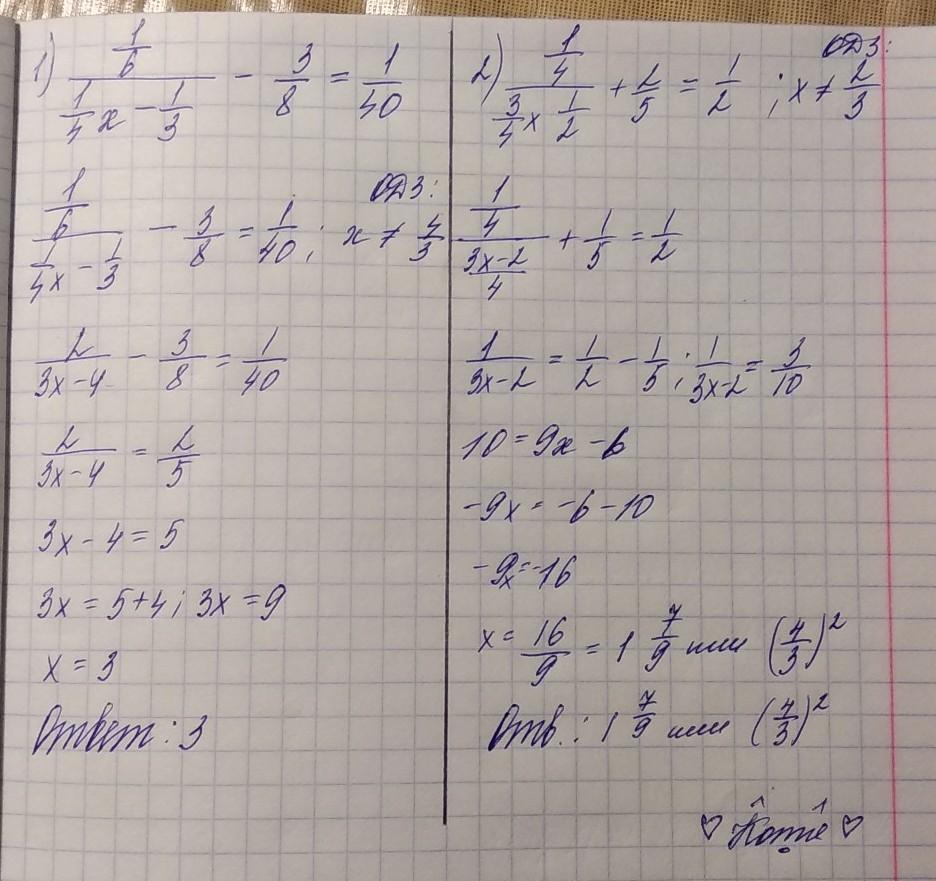 1) (1/6)/(1/4 x - 1/3) - 3/8 = 1/40
(1/6)/(1/4x - 1/3) - 3/8 = 1/40; ОДЗ: x ≠ 4/3
2/(3x-4) - 3/8 = 1/40
2/(3x-4) = 2/5
3x - 4 = 5
3x = 5+4; 3x = 9
x = 3
Ответ: 3
2) (1/4)/(3/4 x 1/2) + 1/5 = 1/2 ; ОДЗ: x ≠ 2/3
(1/4)/((3x-2)/4) + 1/5 = 1/2
1/(3x-2) = 1/2 - 1/5; 1/(3x-2) = 3/10
10 = 9x - 6
-9x = -6 - 10
-9x = -16
x = 16/9 = 1 7/9 или (4/3)²
Отв.: 1 7/9 или (4/3)²
♡ Котѐ ♡